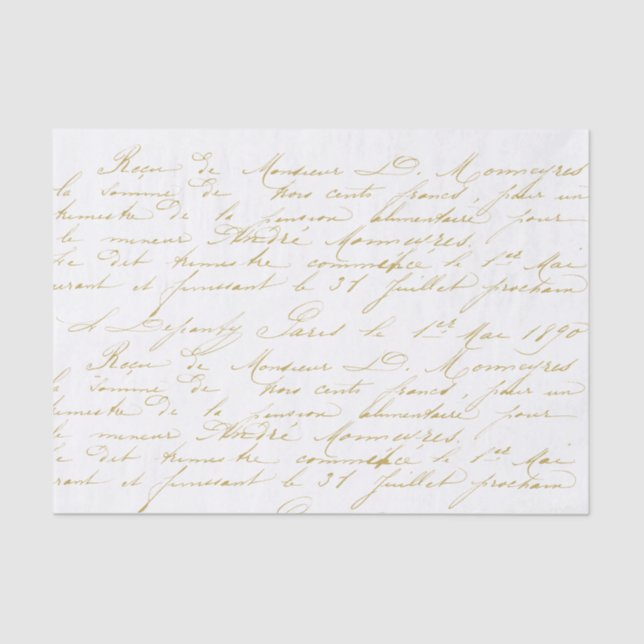 Reçu de Monsieur D. Monneyres
la somme de trois cents francs, pour un
trimestre de la pension alimentaire pour
le mineur André Monneyres.
Le dit trimestre commence le 1er Mai
urant et finissant le 31 Juillet prochain
Paris le 1er Mai 1890
Reçu de Monsieur D. Monneyres
la somme de trois cents francs, pour un
trimestre de la pension alimentaire pour
le mineur André Monneyres.
Le dit trimestre commence le 1er Mai
urant et finissant le 31 Juillet prochain